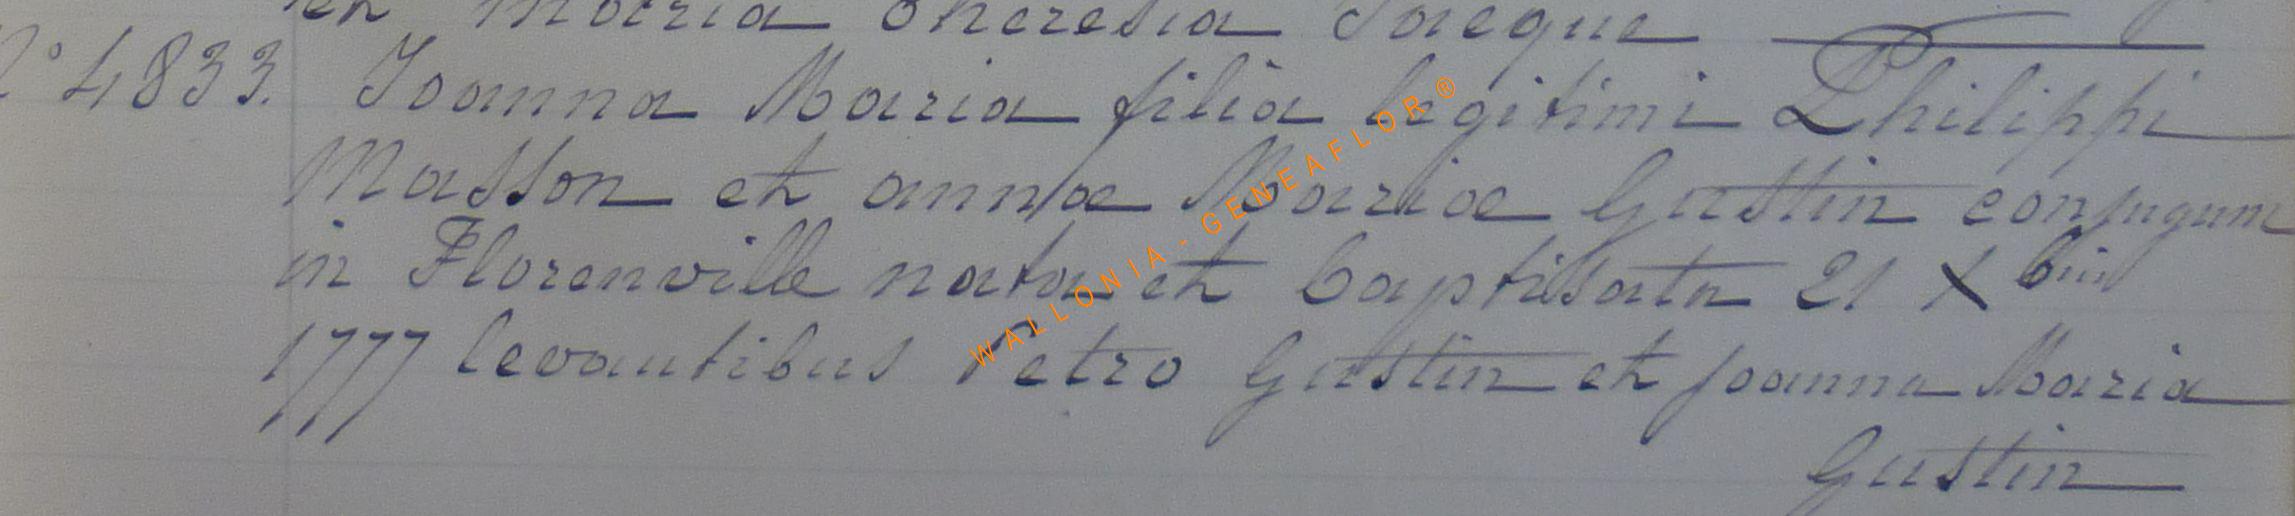 et Maria Theresia Jacque
N° 4833. Joanna Maria filia legitimi Philippi
Masson et annæ Mariæ Gustin conjugum
in Florenville nata et baptisata 21 Xbris
1777 levantibus Petro Gustin et joanna Maria
Gustin
WALLONIA - GENEAFLOR®